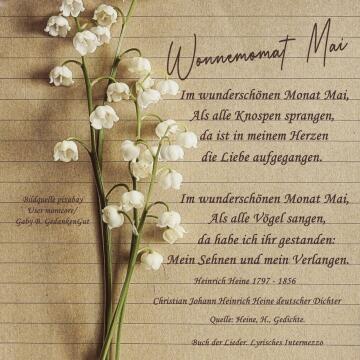 Wonnemomat Mai
Im wunderschönen Monat Mai,
Als alle Knospen sprangen,
da ist in meinem Herzen
die Liebe aufgegangen.
Im wunderschönen Monat Mai,
Als alle Vögel sangen,
da habe ich ihr gestanden:
Mein Sehnen und mein Verlangen.
Heinrich Heine 1797 - 1856
Christian Johann Heinrich Heine deutscher Dichter
Quelle: Heine, H., Gedichte.
Buch der Lieder. Lyrisches Intermezzo
Bildquelle pixabay
User momcore/
Gaby B. GedankenGut